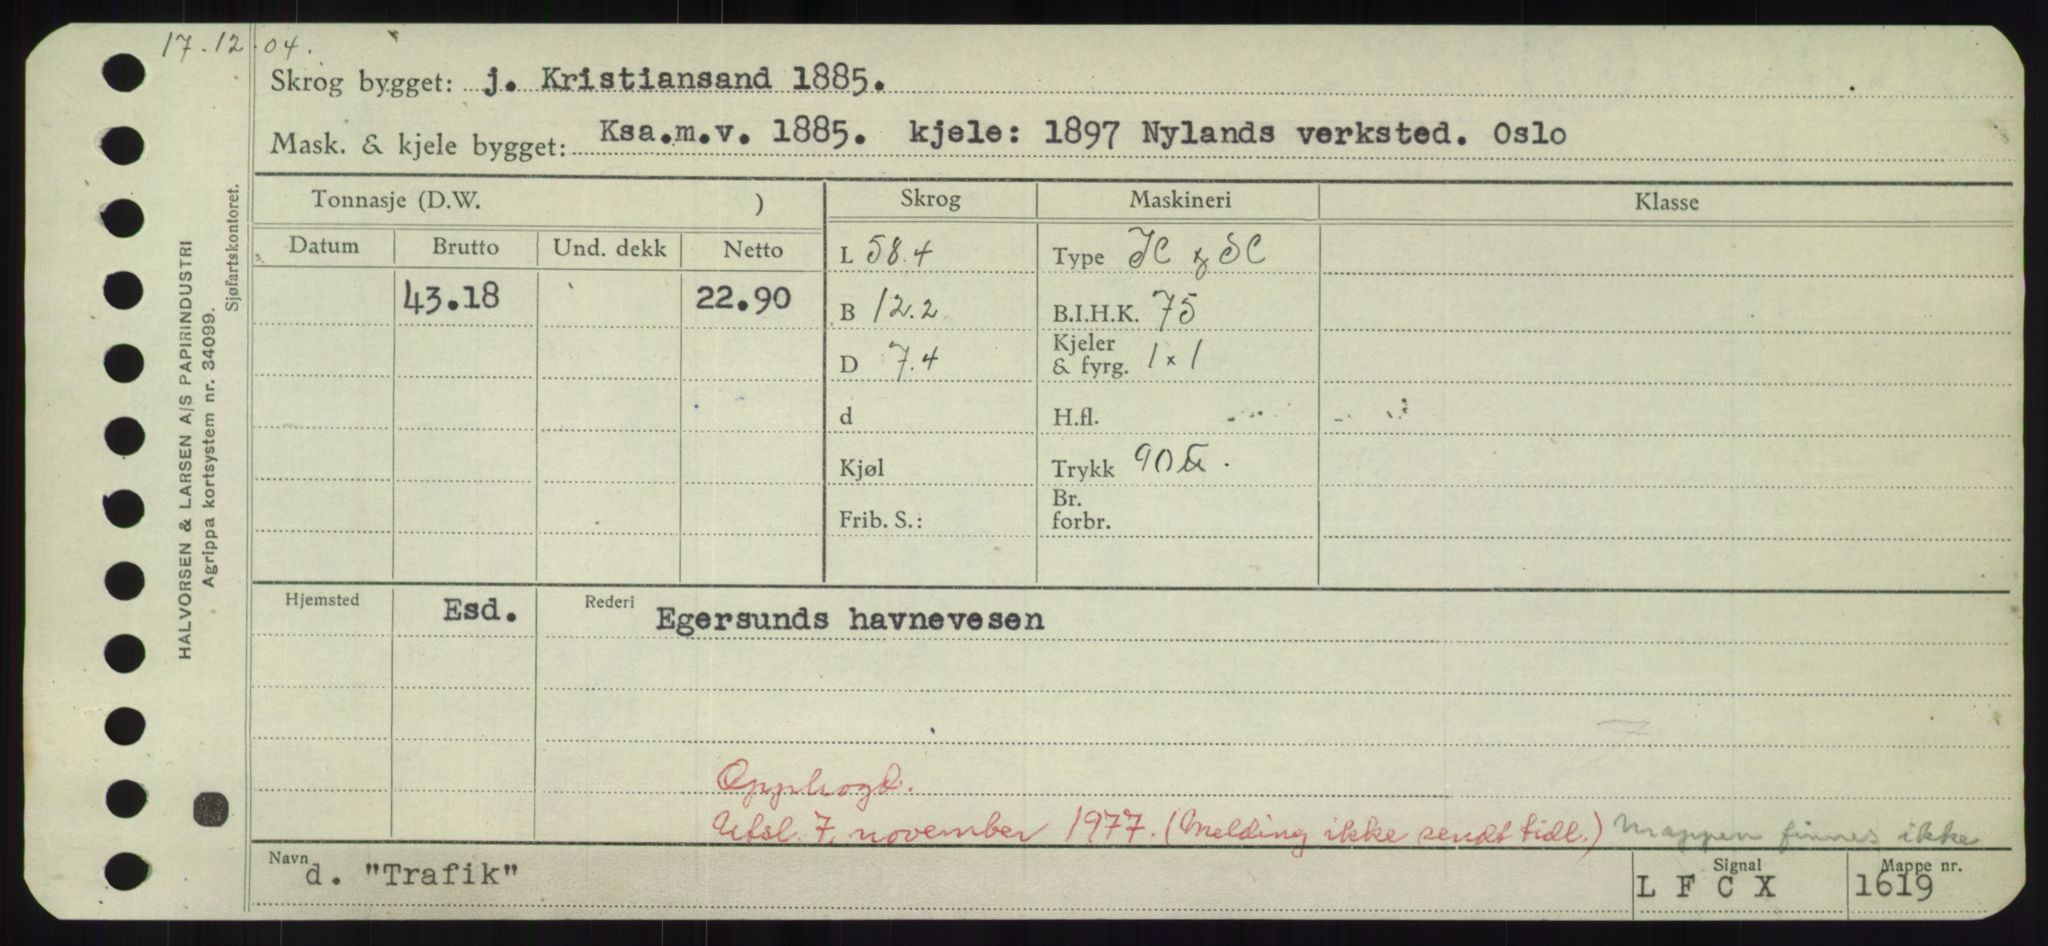 17.12.04.
Skrog bygget: j. Kristiansand 1885.
Mask. & kjele bygget: Ksa.m.v. 1885. kjele: 1897 Nylands verksted. Oslo
Tonnasje (D.W. ) Skrog Maskineri Klasse
Datum Brutto Und. dekk Netto
43.18 22.90
L 58.4
B 12.2
D 7.4
d
Kjøl
Frib. S.:
Type
B.I.H.K. 75
Kjeler
& fyrg. 1 x 1
H.fl.
Trykk 90
Br.
forbr.
Hjemsted Esd. Rederi Egersunds havnevesen
Opphogd.
Utsl. 7. november 1977. (Melding ikke sendt tidl.) Mappen finnes ikke
Navn d. "Trafik" Signal L F C X Mappe nr. 1619
HALVORSEN & LARSEN A/S PAPIRINDUSTRI
Agrippa kortsystem nr. 34099.
Sjøfartskontoret.